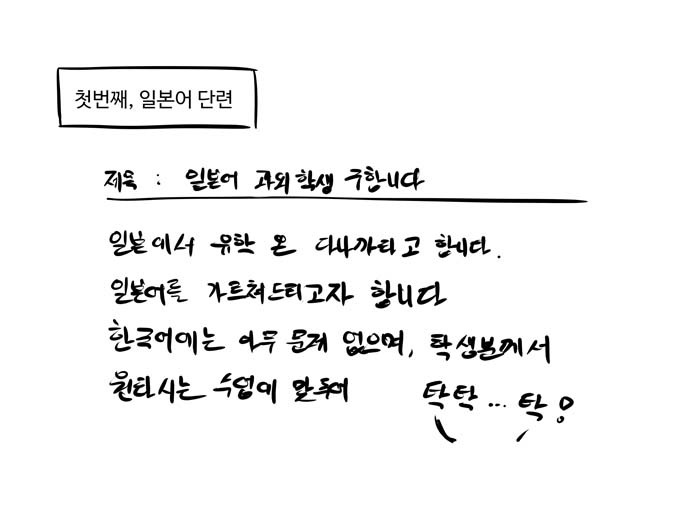 첫번째, 일본어 단련
제목 : 일본어 과외 학생 구합니다
일본에서 유학 온 다나까라고 합니다.
일본어를 가르쳐드리고자 합니다
한국어에는 아무 문제 없으며, 학생분께서
원하시는 수업에 맞추어
탁탁... 탁!